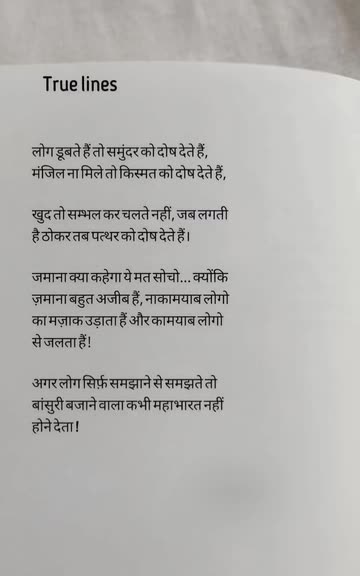 True lines
लोग डूबते हैं तो समुंदर को दोष देते हैं,
मंजिल ना मिले तो किस्मत को दोष देते हैं,
खुद तो सम्भल कर चलते नहीं, जब लगती
है ठोकर तब पत्थर को दोष देते हैं।
जमाना क्या कहेगा ये मत सोचो... क्योंकि
ज़माना बहुत अजीब हैं, नाकामयाब लोगो
का मज़ाक उड़ाता हैं और कामयाब लोगो
से जलता हैं!
अगर लोग सिर्फ़ समझाने से समझते तो
बांसुरी बजाने वाला कभी महाभारत नहीं
होने देता !